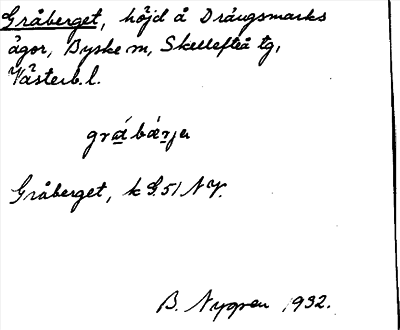 Gråberget, höjd å Drängsmarks
ägor, Byske sn, Skellefteå tg,
Västerb. l.
Gråberget, k G.51 NV.
B. Nygren 1932.